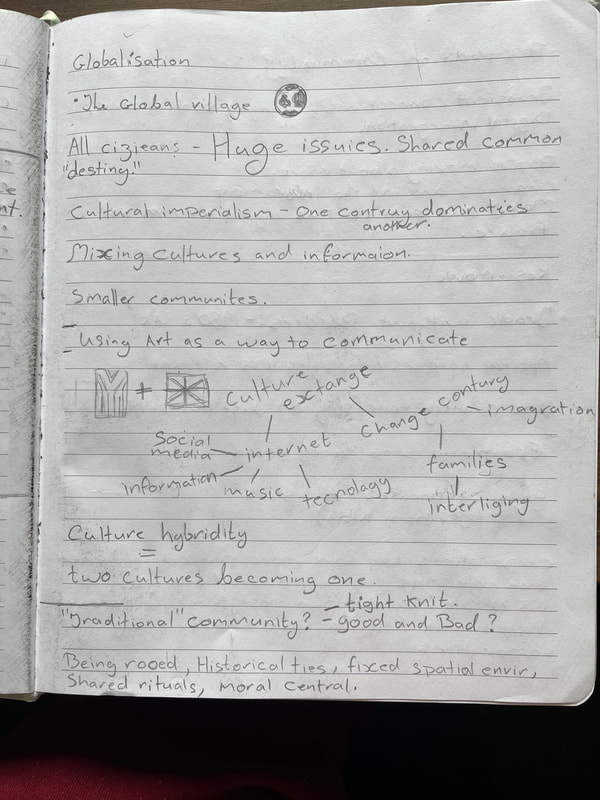 Globalisation
• The Global village
All cizjeans - Huge issuies. Shared common
"destiny."
Cultural imperialism - One contruy dominaties
another.
Mixcing cultures and informaion.
Smaller communites.
- Using Art as a way to communicate
+
Culture
exctange
change
contury
- imagration
families
interliging
internet
Social
media
information
music
tecnology
Culture hybridity
=
two cultures becoming one.
- tight knit.
"Traditional" community? - good and Bad?
Being rooed, Historical ties, fixced spatial envir,
Shared rituals, moral central.
nt.